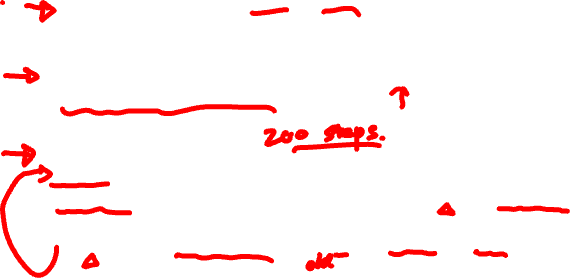 200 steps.
old